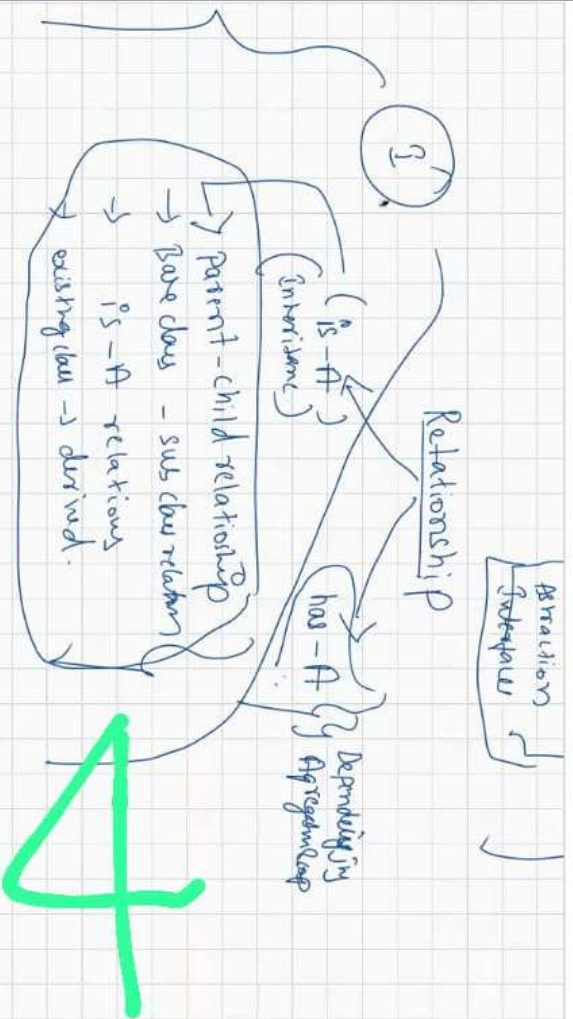 Abstraction
Interfaces
Relationship
I
(is-A)
(Inheritance)
has-A
Dependency
→ Parent-child relationship
→ Base class - sub class relation
→ is-A relations
→ existing class → derived.
4